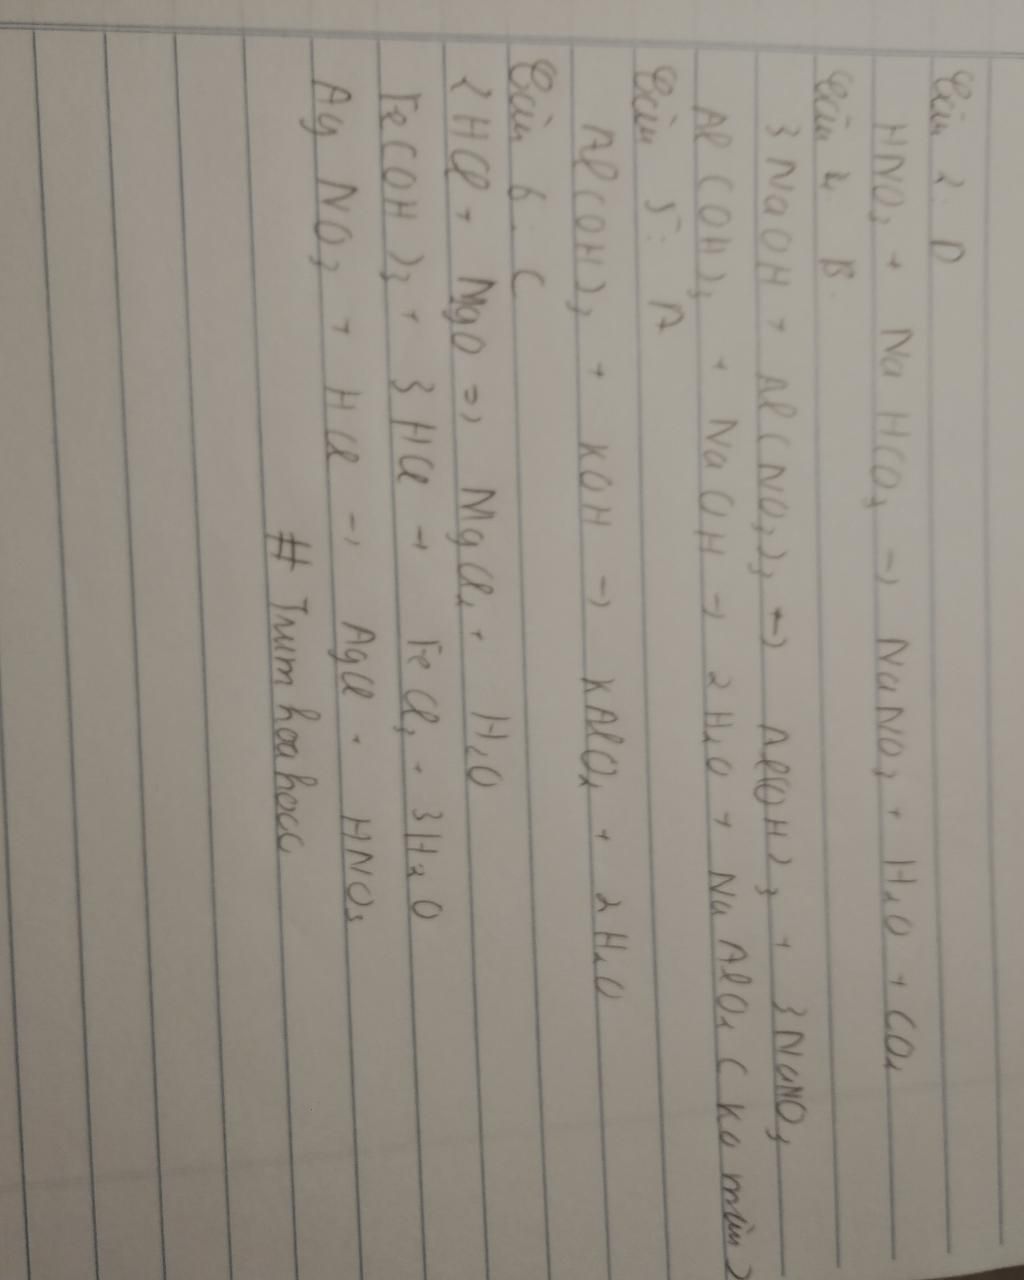 Câu 2: D
HNO₃ + NaHCO₃ → NaNO₃ + H₂O + CO₂
Câu 4 B.
3NaOH + Al(NO₃)₃ → Al(OH)₃ + 3NaNO₃
Al(OH)₃ + NaOH → 2H₂O + NaAlO₂ (Ko màu)
Câu 5: A
Al(OH)₃ + KOH → KAlO₂ + 2H₂O
Câu 6: C
2HCl + MgO => MgCl₂ + H₂O
Fe(OH)₃ + 3HCl → FeCl₃ + 3H₂O
AgNO₃ + HCl → AgCl + HNO₃
# Trumhoahocc